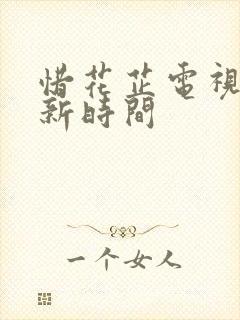 惜花芷電視
新時間
一个女人